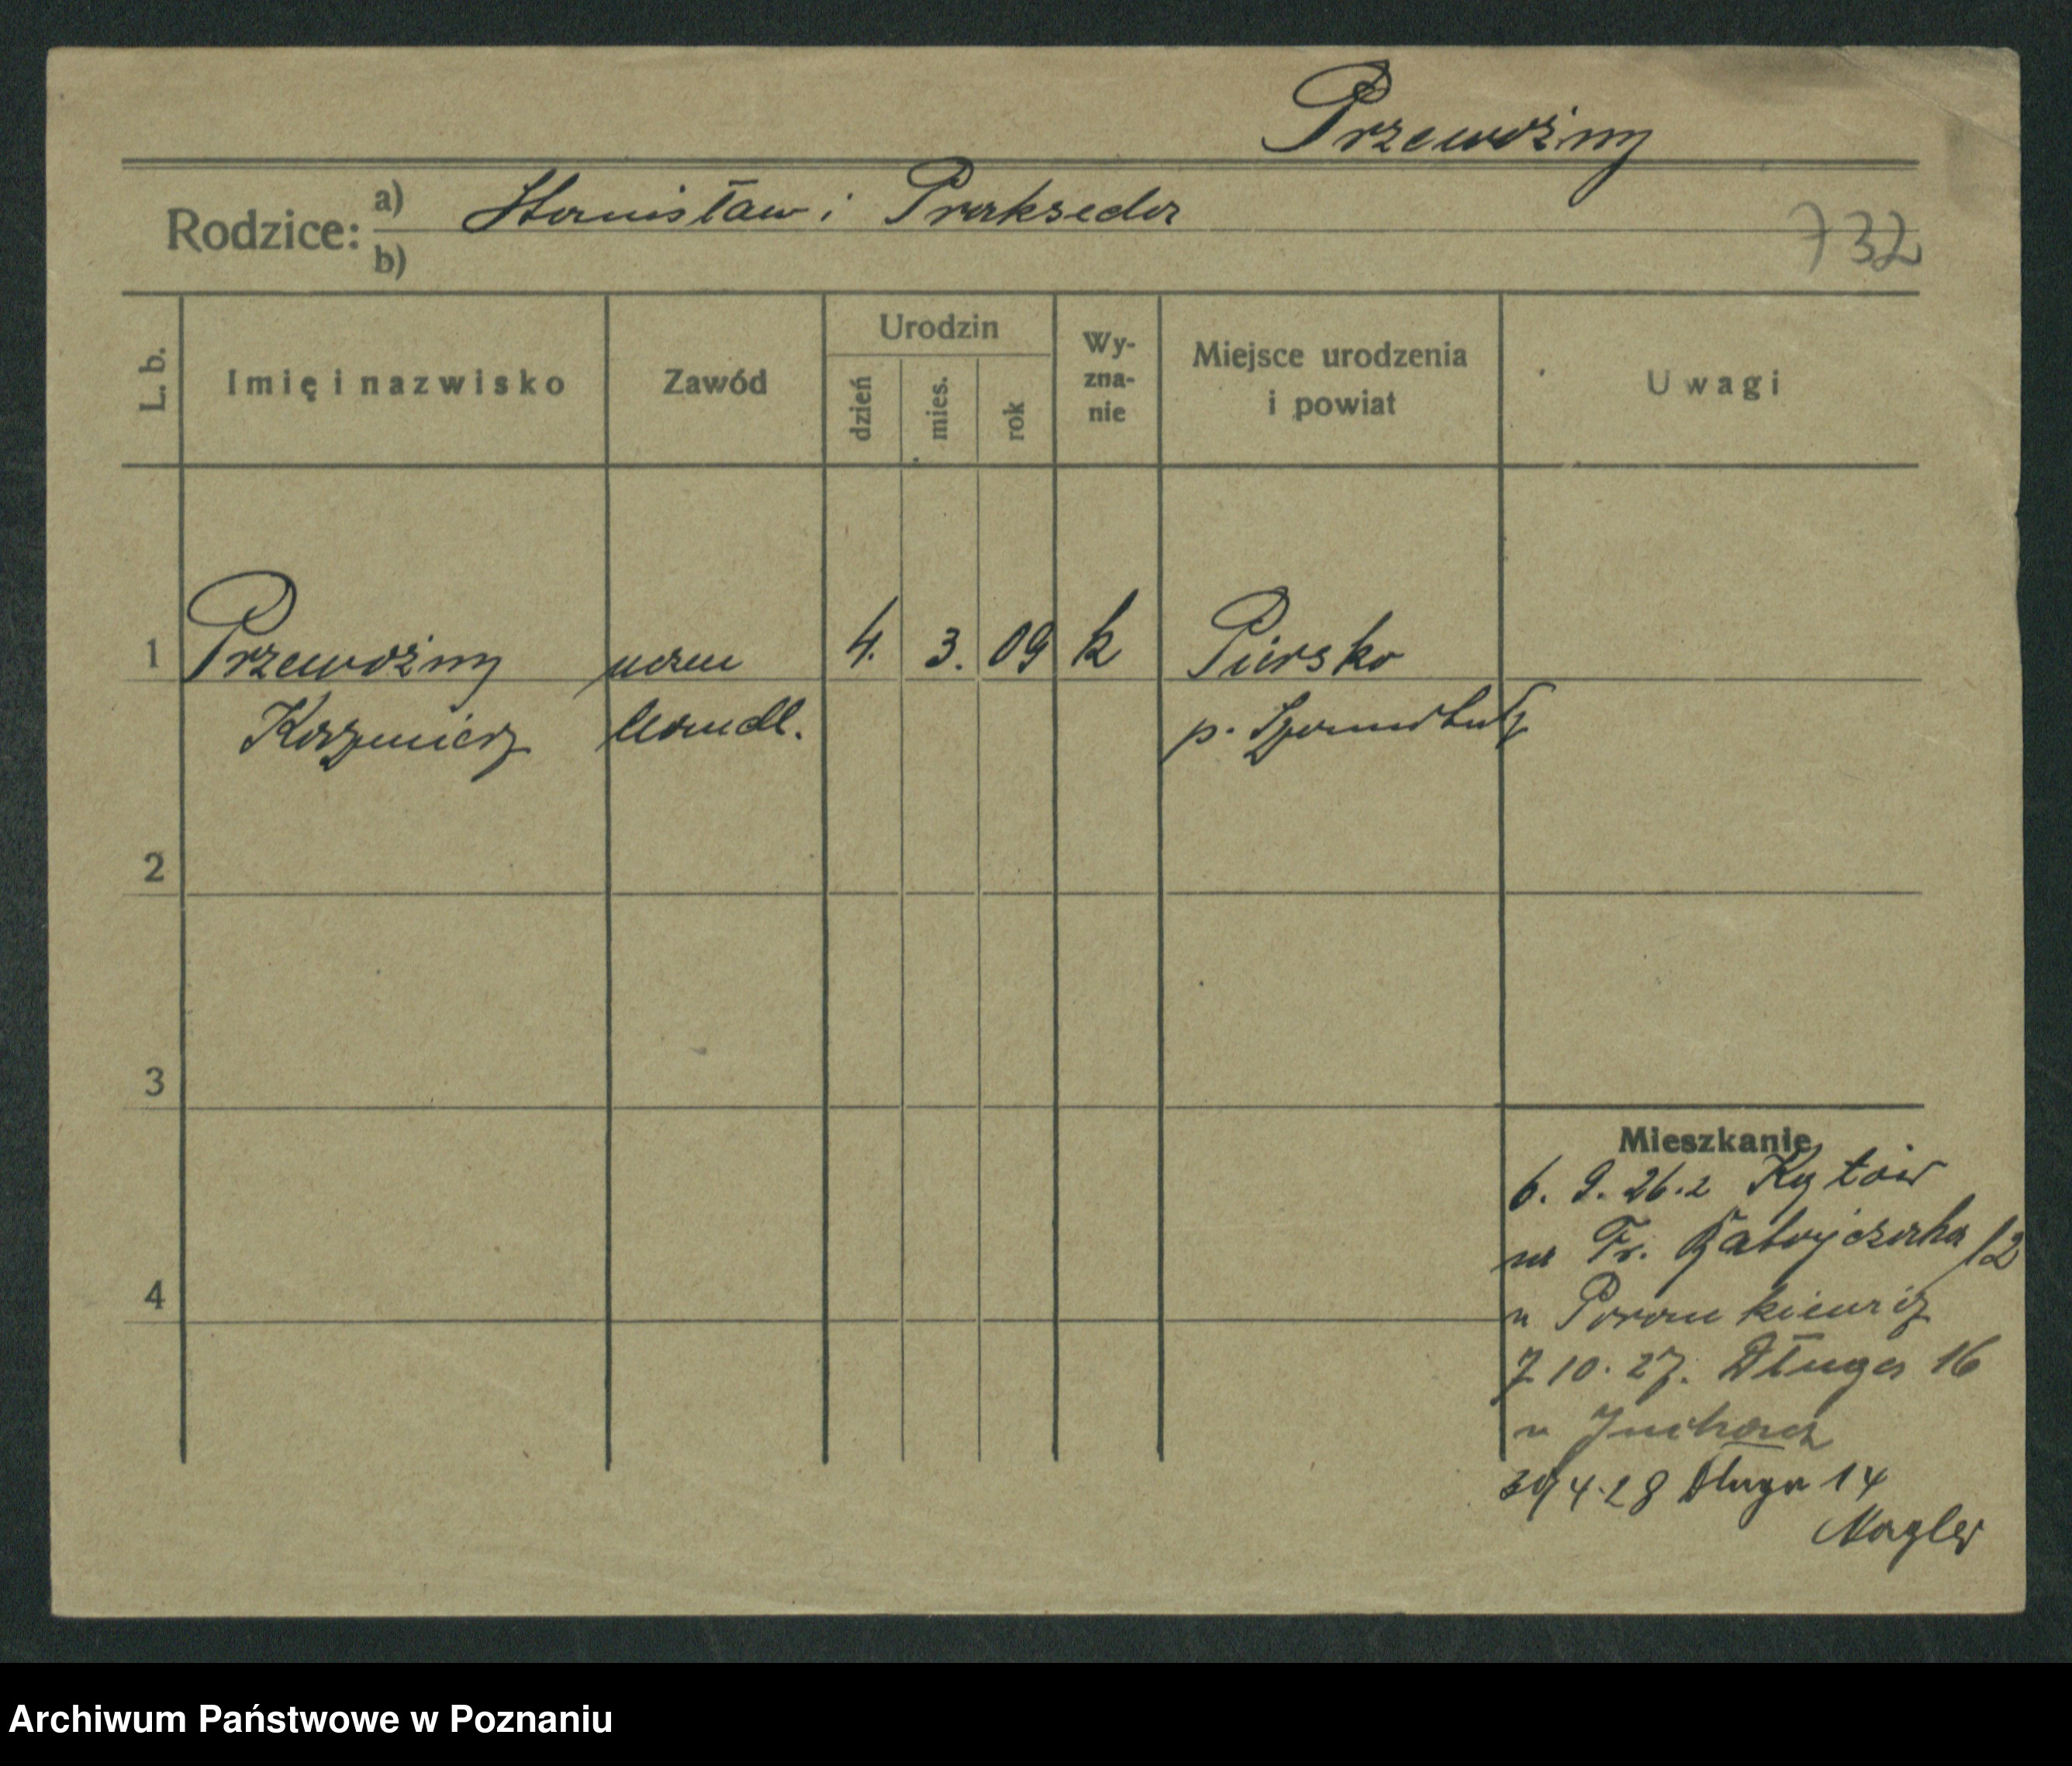 Przewoźny
Rodzice: a) Stanisław i Prakseda
b)
732
L. b.
Imię i nazwisko
Zawód
Urodzin
dzień
mies.
rok
Wy-
zna-
nie
Miejsce urodzenia
i powiat
Uwagi
1 Przewoźny uczeń 4. 3. 09 k Piersko
Kazimierz handl. p. Szamotuły
2
3
4
Mieszkanie
6. 9. 26. z
na Fr. Ratajczaka 12
u
7 10. 27. Długa 16
u
30/4.28 Długa 14
Archiwum Państwowe w Poznaniu